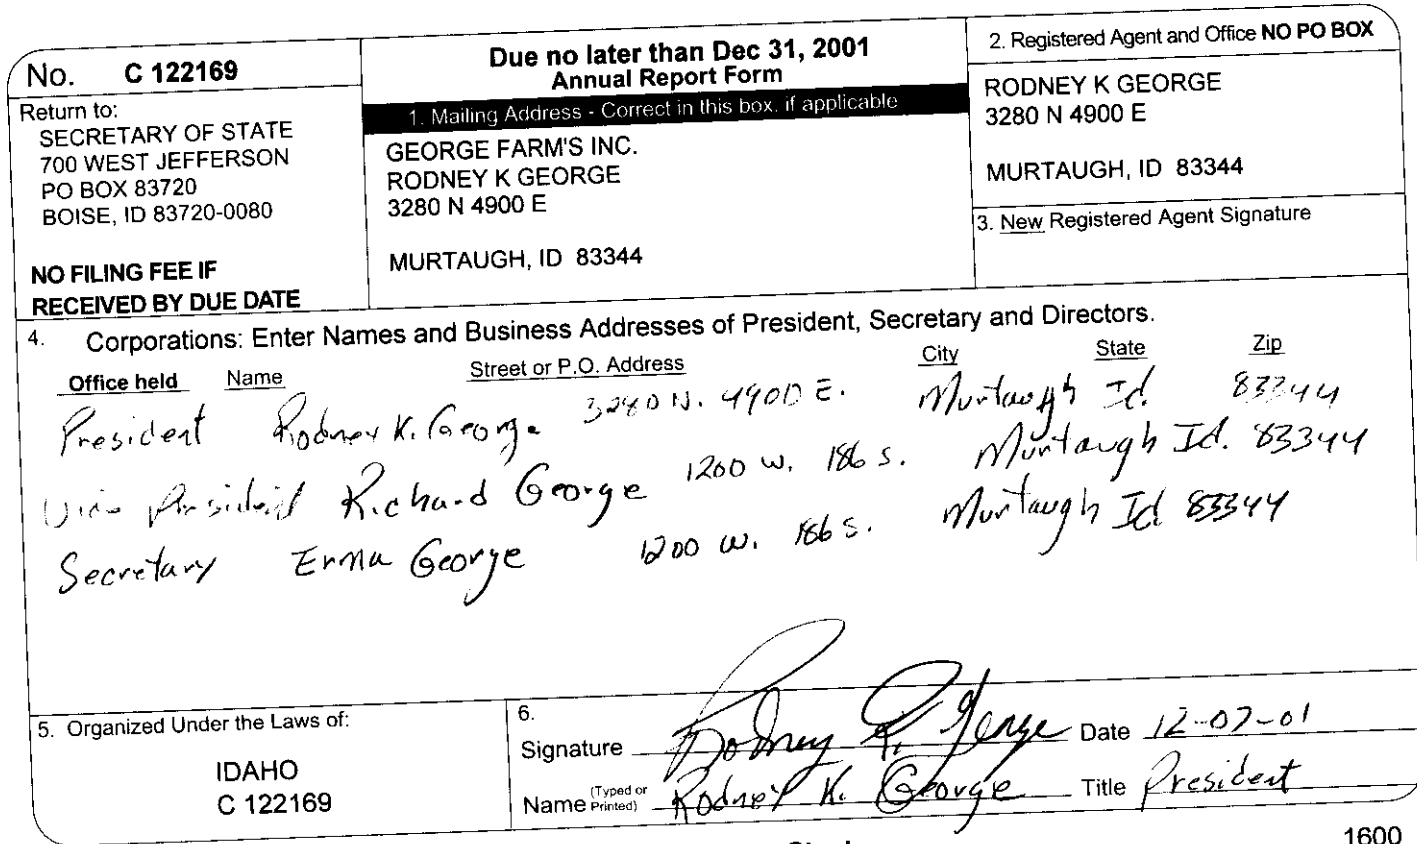 No. C 122169
Return to:
SECRETARY OF STATE
700 WEST JEFFERSON
PO BOX 83720
BOISE, ID 83720-0080
NO FILING FEE IF
RECEIVED BY DUE DATE
Due no later than Dec 31, 2001
Annual Report Form
1. Mailing Address - Correct in this box, if applicable
GEORGE FARM'S INC.
RODNEY K GEORGE
3280 N 4900 E
MURTAUGH, ID 83344
2. Registered Agent and Office NO PO BOX
RODNEY K GEORGE
3280 N 4900 E
MURTAUGH, ID 83344
3. New Registered Agent Signature
4. Corporations: Enter Names and Business Addresses of President, Secretary and Directors.
Office held Name Street or P.O. Address City State Zip
President Rodney K. George 3280 N. 4900 E. Murtaugh Id. 83344
Vice President Richard George 1200 W. 186 S. Murtaugh Id. 83344
Secretary Erma George 1200 W. 186 S. Murtaugh Id 83344
5. Organized Under the Laws of:
IDAHO
C 122169
6.
Signature Rodney K. George Date 12-07-01
Name (Typed or Printed) Rodney K. George Title President
1600